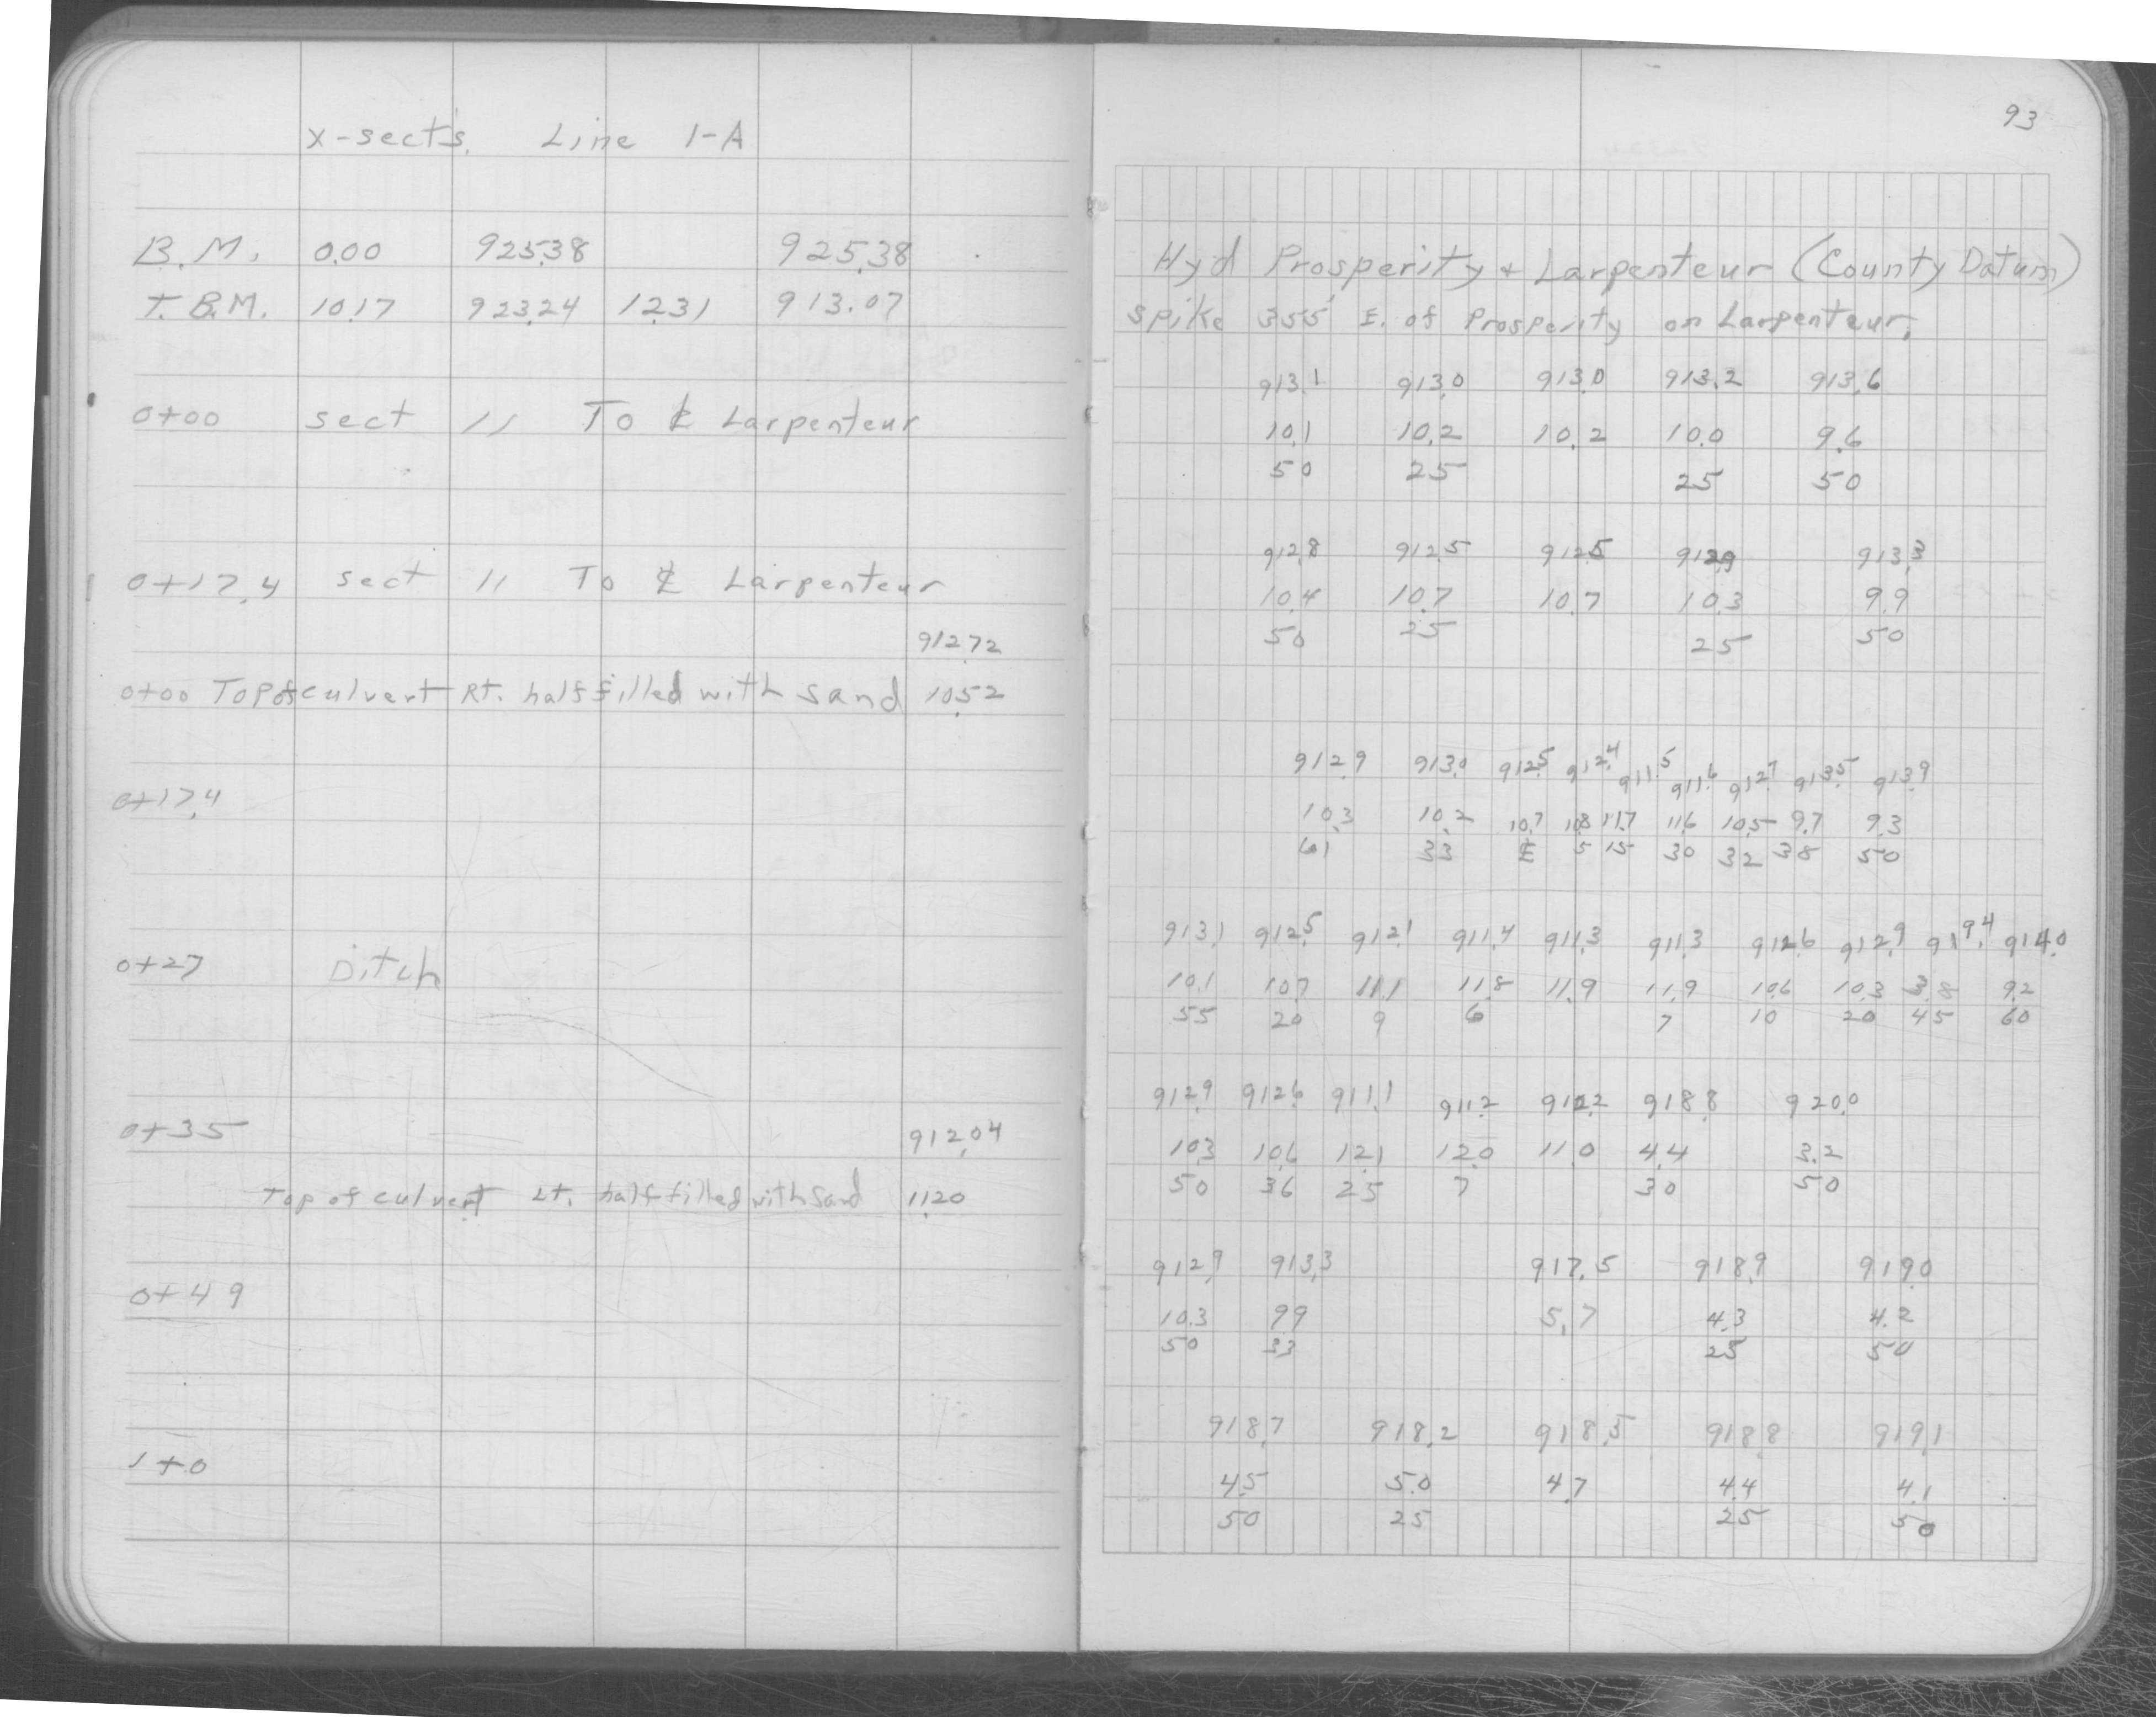 93
x-sect's. Line 1-A
B.M. 0.00 925.38 925.38
T.B.M. 10.17 923.24 12.31 913.07
0+00 sect // To ℄ Larpenteur
0+17.4 sect // To ℄ Larpenteur
912.72
0+00 Top of culvert Rt. half filled with sand 10.52
0+17.4
0+27 Ditch
0+35 912.04
Top of culvert Lt. half filled with sand 11.20
0+49
1+0
Hyd Prosperity + Larpenteur (County Datum)
spike 355' E. of Prosperity on Larpenteur.
913.1 913.0 913.0 913.2 913.6
10.1 10.2 10.2 10.0 9.6
50 25 25 50
912.8 912.5 912.5 912.9 913.3
10.4 10.7 10.7 10.3 9.9
50 25 25 50
912.9 913.0 912.5 912.4 911.5 911.6 912.7 913.5 913.9
10.3 10.2 10.7 10.8 11.7 11.6 10.5 9.7 9.3
61 33 ℄ 5 15 30 32 38 50
913.1 912.5 912.1 911.4 911.3 911.3 912.6 912.9 919.4 914.0
10.1 10.7 11.1 11.8 11.9 11.9 10.6 10.3 3.8 9.2
55 20 9 6 7 10 20 45 60
912.9 912.6 911.1 911.2 912.2 918.8 920.0
10.3 10.6 12.1 12.0 11.0 4.4 3.2
50 36 25 7 30 50
912.9 913.3 917.5 918.9 919.0
10.3 9.9 5.7 4.3 4.2
50 33 25 50
918.7 918.2 918.5 918.8 919.1
4.5 5.0 4.7 4.4 4.1
50 25 25 50